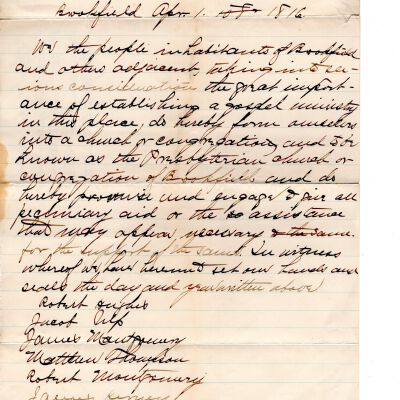 Brookfield Apr. 1. 1816
We the people inhabitants of Brookfield
and others adjacent, taking into ser-
ious consideration the great import-
ance of establishing a gospel ministry
in this place, do hereby form ourselves
into a church or congregation, and to be
known as the Presbyterian church or
congregation of Brookfield and do
hereby promise and engage to give all
pecuniary aid or the assistance
that may appear necessary to the same.
for the support of the same. In witness
whereof we, have hereunto set our hands and
seals the day and year written above
Robert Hughes
Jacob Ulp
James Montgomery
Matthew Thompson
Robert Montgomery
James